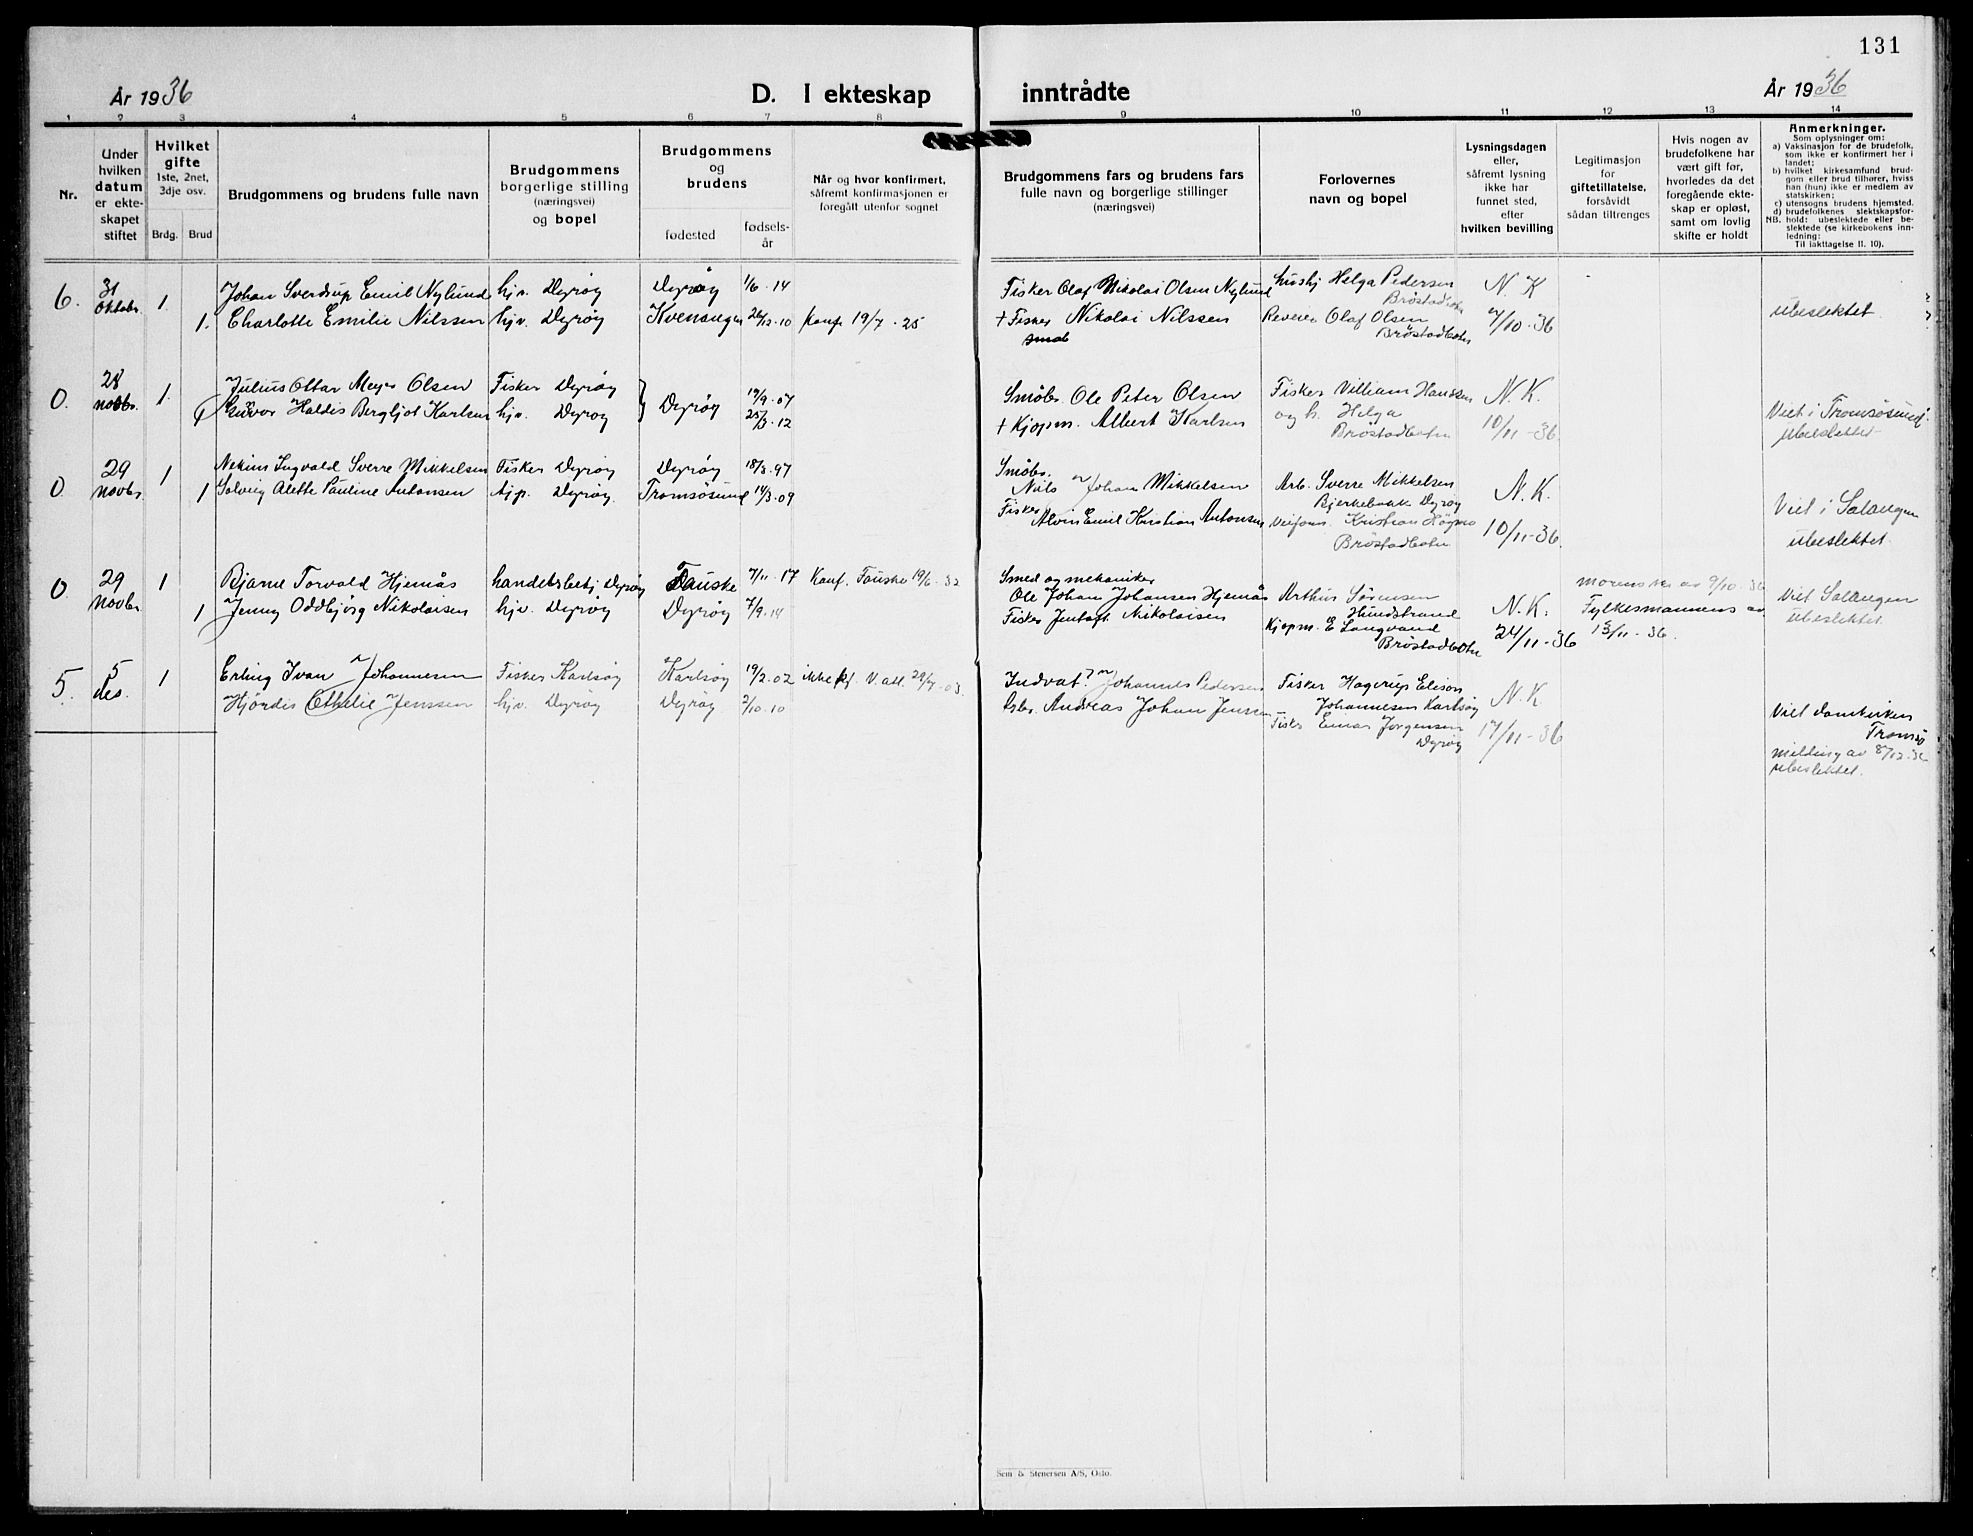 131
År 1936
D. I ekteskap inntrådte
År 1936
1 2 3 4 5 6 7 8 9 10 11 12 13 14
Nr.
Under hvilken datum er ekteskapet stiftet
Hvilket gifte
1ste, 2net, 3dje osv.
Brdg. Brud
Brudgommens og brudens fulle navn
Brudgommens borgerlige stilling (næringsvei) og bopel
Brudgommens og brudens
fødested
fødselsår
Når og hvor konfirmert, såfremt konfirmasjonen er foregått utenfor sognet
Brudgommens fars og brudens fars fulle navn og borgerlige stillinger (næringsvei)
Forlovernes navn og bopel
Lysningsdagen eller, såfremt lysning ikke har funnet sted, efter hvilken bevilling
Legitimasjon for giftetillatelse, forsåvidt sådan tiltrenges
Hvis nogen av brudefolkene har vært gift før, hvorledes da det foregående ekteskap er opløst, samt om lovlig skifte er holdt
Anmerkninger.
Som oplysninger om:
a) Vaksinasjon for de brudefolk, som ikke er konfirmert her i landet;
b) hvilket kirkesamfund brudgom eller brud tilhører, hviss han (hun) ikke er medlem av statskirken;
c) utensogns brudens hjemsted.
d) brudefolkenes slektskapsforhold: ubeslektede eller beslektede (se kirkebokens innledning:
NB.
Til iakttagelse II. 10).
6. 31 Oktobr. 1 Johan Sverdrup Emil Nylund hjv. Dyrøy Dyrøy 1/6 - 14 Fisker Olaf Nikolai Olsen Nylund hushj Helga Pedersen Brøstadbotn N. K
1. Charlotte Emilie Nilssen hjv. Dyrøy Kvenangen 26/12 - 10 konf 19/7 - 25 + Fisker Nikolai Nilssen Olaf Olsen Brøstadbotn /10 - 36 ubeslektet.
0. 28 novbr. 1. Julius Ottar Meyer Olsen Fisker Dyrøy Dyrøy 19/9 - 07 Småbr. Ole Peter Olsen Fisker Villiam Hanssen N. K.
Haldis Bergljot Karlsen hjv. Dyrøy 25/3 - 12 + Kjøpm. Albert Karlsen og h. Helga Brøstadbotn 10/11 - 36. Viet i Tromsøsund. ubeslektet
0 29 novbr 1 Ingvald Sverre Mikkelsen Fisker Dyrøy Dyrøy 18/3 - 97 Småbr. Nils Johan Mikkelsen Arb. Sverre Mikkelsen Bjerkebakk Dyrøy N. K.
1 Solveig Alette Pauline Antonsen Dyrøy. Tromsøsund 14/3 - 09 Fisker Alvin Emil Kristian Antonsen Kristian Brøstadbotn 10/11 - 36. Viet i Salangen ubeslektet
0 29 Novbr 1 Bjarne Torvald Hjemås handelsbetj Dyrøy Fauske 7/11 - 17 Konf. Fauske 19/6 - 32 Smed og mekaniker Ole Johan Johansen Hjemås Arthur Sørensen Hundstrand N. K. av 9/10 - 36
1 Jenny Oddbjørg Nikolaisen hjv. Dyrøy Dyrøy 7/9 - 14 Fisker Jentoft Nikolaisen Kjøpm. E Langvand Brøstadbotn 24/11 - 36 Fylkesmannens av 13/11 - 36. Viet Salangen ubeslektet.
5. 5 des. 1 Erling Ivan Johannesen Fisker Karlsøy Karlsøy 19/2 - 02 ikke kf. V. att. 29/7 - 03. Johannes Pedersen Fisker Hagerup Elison Johannesen Karlsøy N. K
Hjørdis Othelie Jenssen hjv. Dyrøy Dyrøy 2/10 - 10 Gbr. Andreas Johan Jenssen Fisk. Einar Jørgensen Dyrøy 17/11 - 36 Viet domkirken Tromsø melding av 8/12 - 36 ubeslektet.
Sem & Stenersen A/S, Oslo.